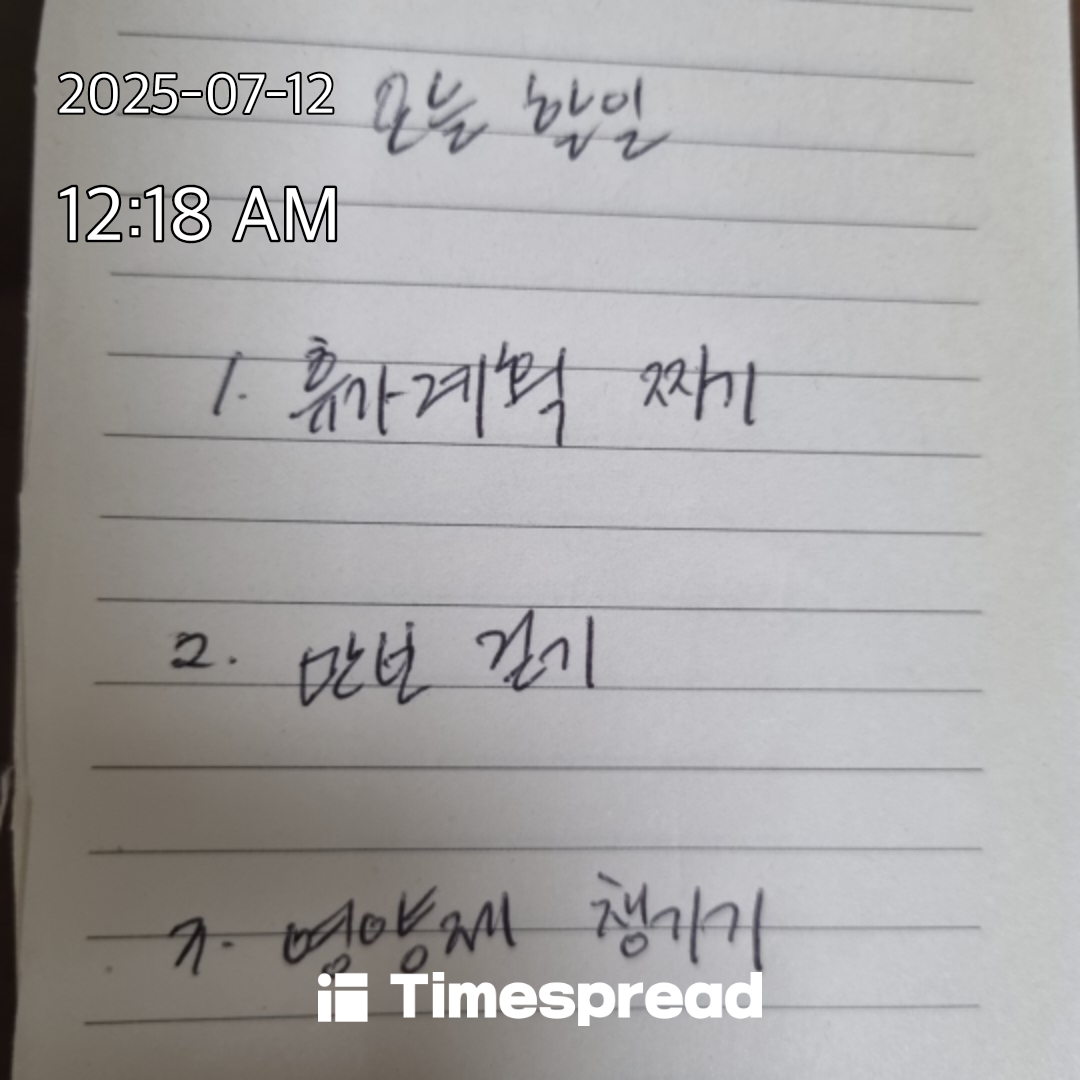 2025-07-12
오늘 할일
12:18 AM
1. 휴가계획 짜기
2. 만보 걷기
3. 영양제 챙기기
Timespread